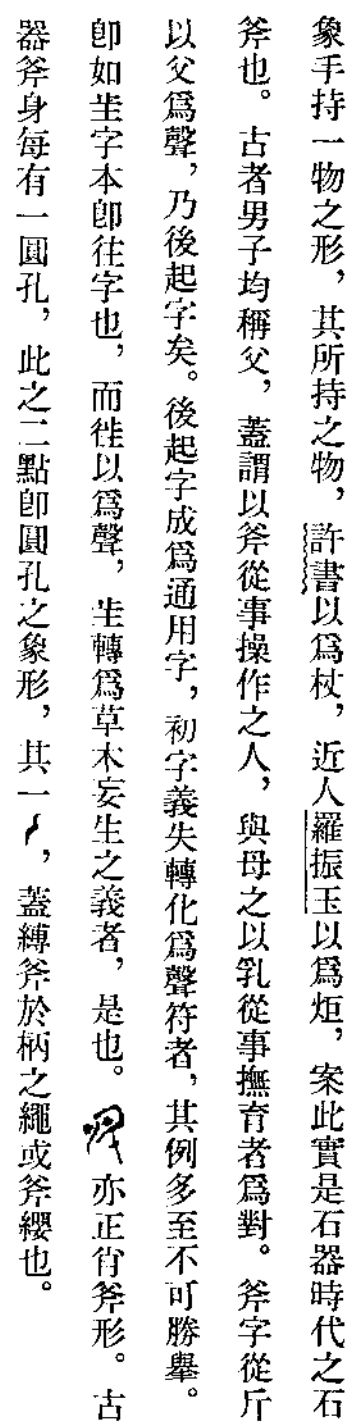 象手持一物之形，其所持之物，許書以爲杖，近人羅振玉以爲炬，案此實是石器時代之石
斧也。古者男子均稱父，蓋謂以斧從事操作之人，與母之以乳從事撫育者爲對。斧字從斤
以父爲聲，乃後起字矣。後起字成爲通用字，初字義失轉化爲聲符者，其例多至不可勝舉。
卽如㞷字本卽往字也，而徃以爲聲，㞷轉爲草木妄生之義者，是也。亦正肖斧形。古
器斧身每有一圓孔，此之二點卽圓孔之象形，其一，蓋縛斧於柄之繩或斧纓也。